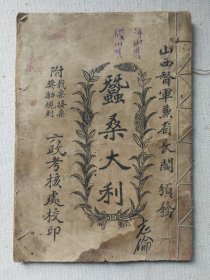 山西督軍兼省長閻頒發
蠶桑大利
附栽桑接桑
獎勵規則
六政考核處校印